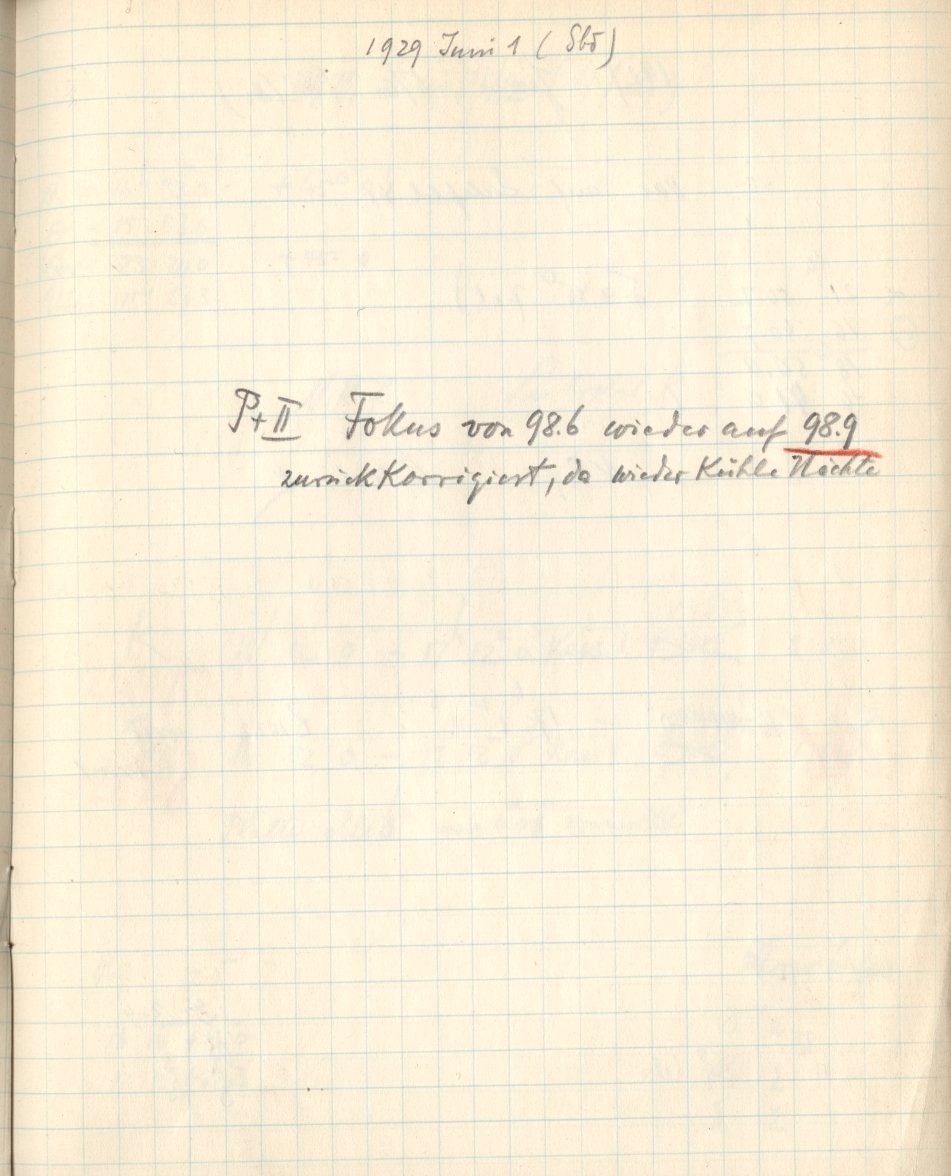 1929 Juni 1 (Sbd)
P+II Fokus von 98.6 wieder auf 98.9
zurückkorrigiert, da wieder kühle Nächte